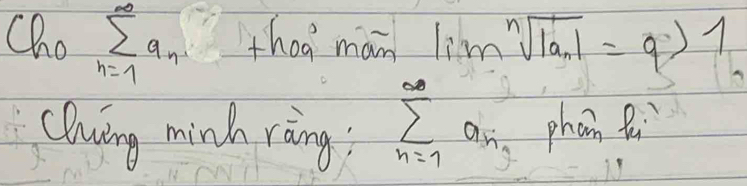 Cho $\sum_{n=1}^{\infty} a_n$ thoả mãn $\lim \sqrt[n]{|a_n|} = q > 1$
Chứng minh rằng: $\sum_{n=1}^{\infty} a_n$ phân kì